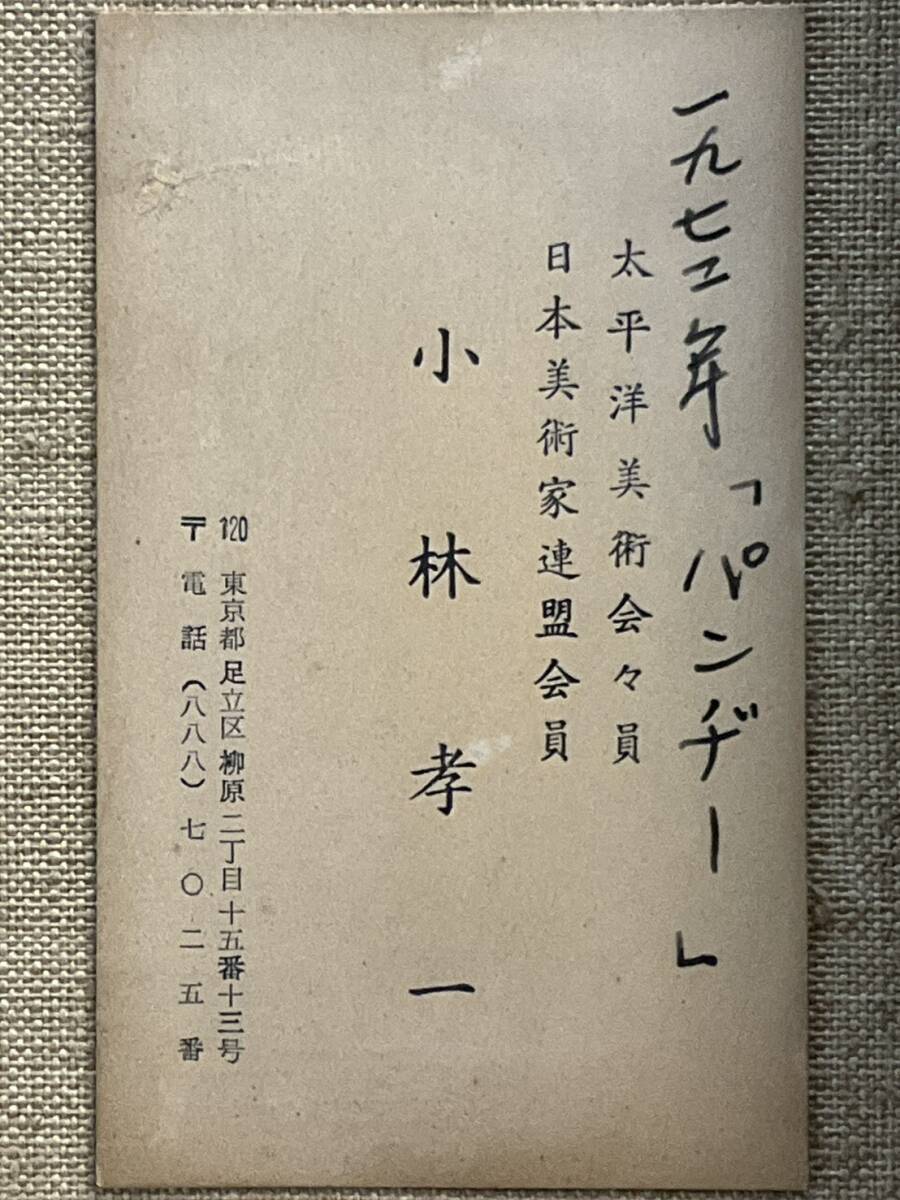 一九七二年「パンヂー」
太平洋美術会々員
日本美術家連盟会員
小林孝一
〒120 東京都足立区柳原二丁目十五番十三号
電話(八八八)七〇二五番